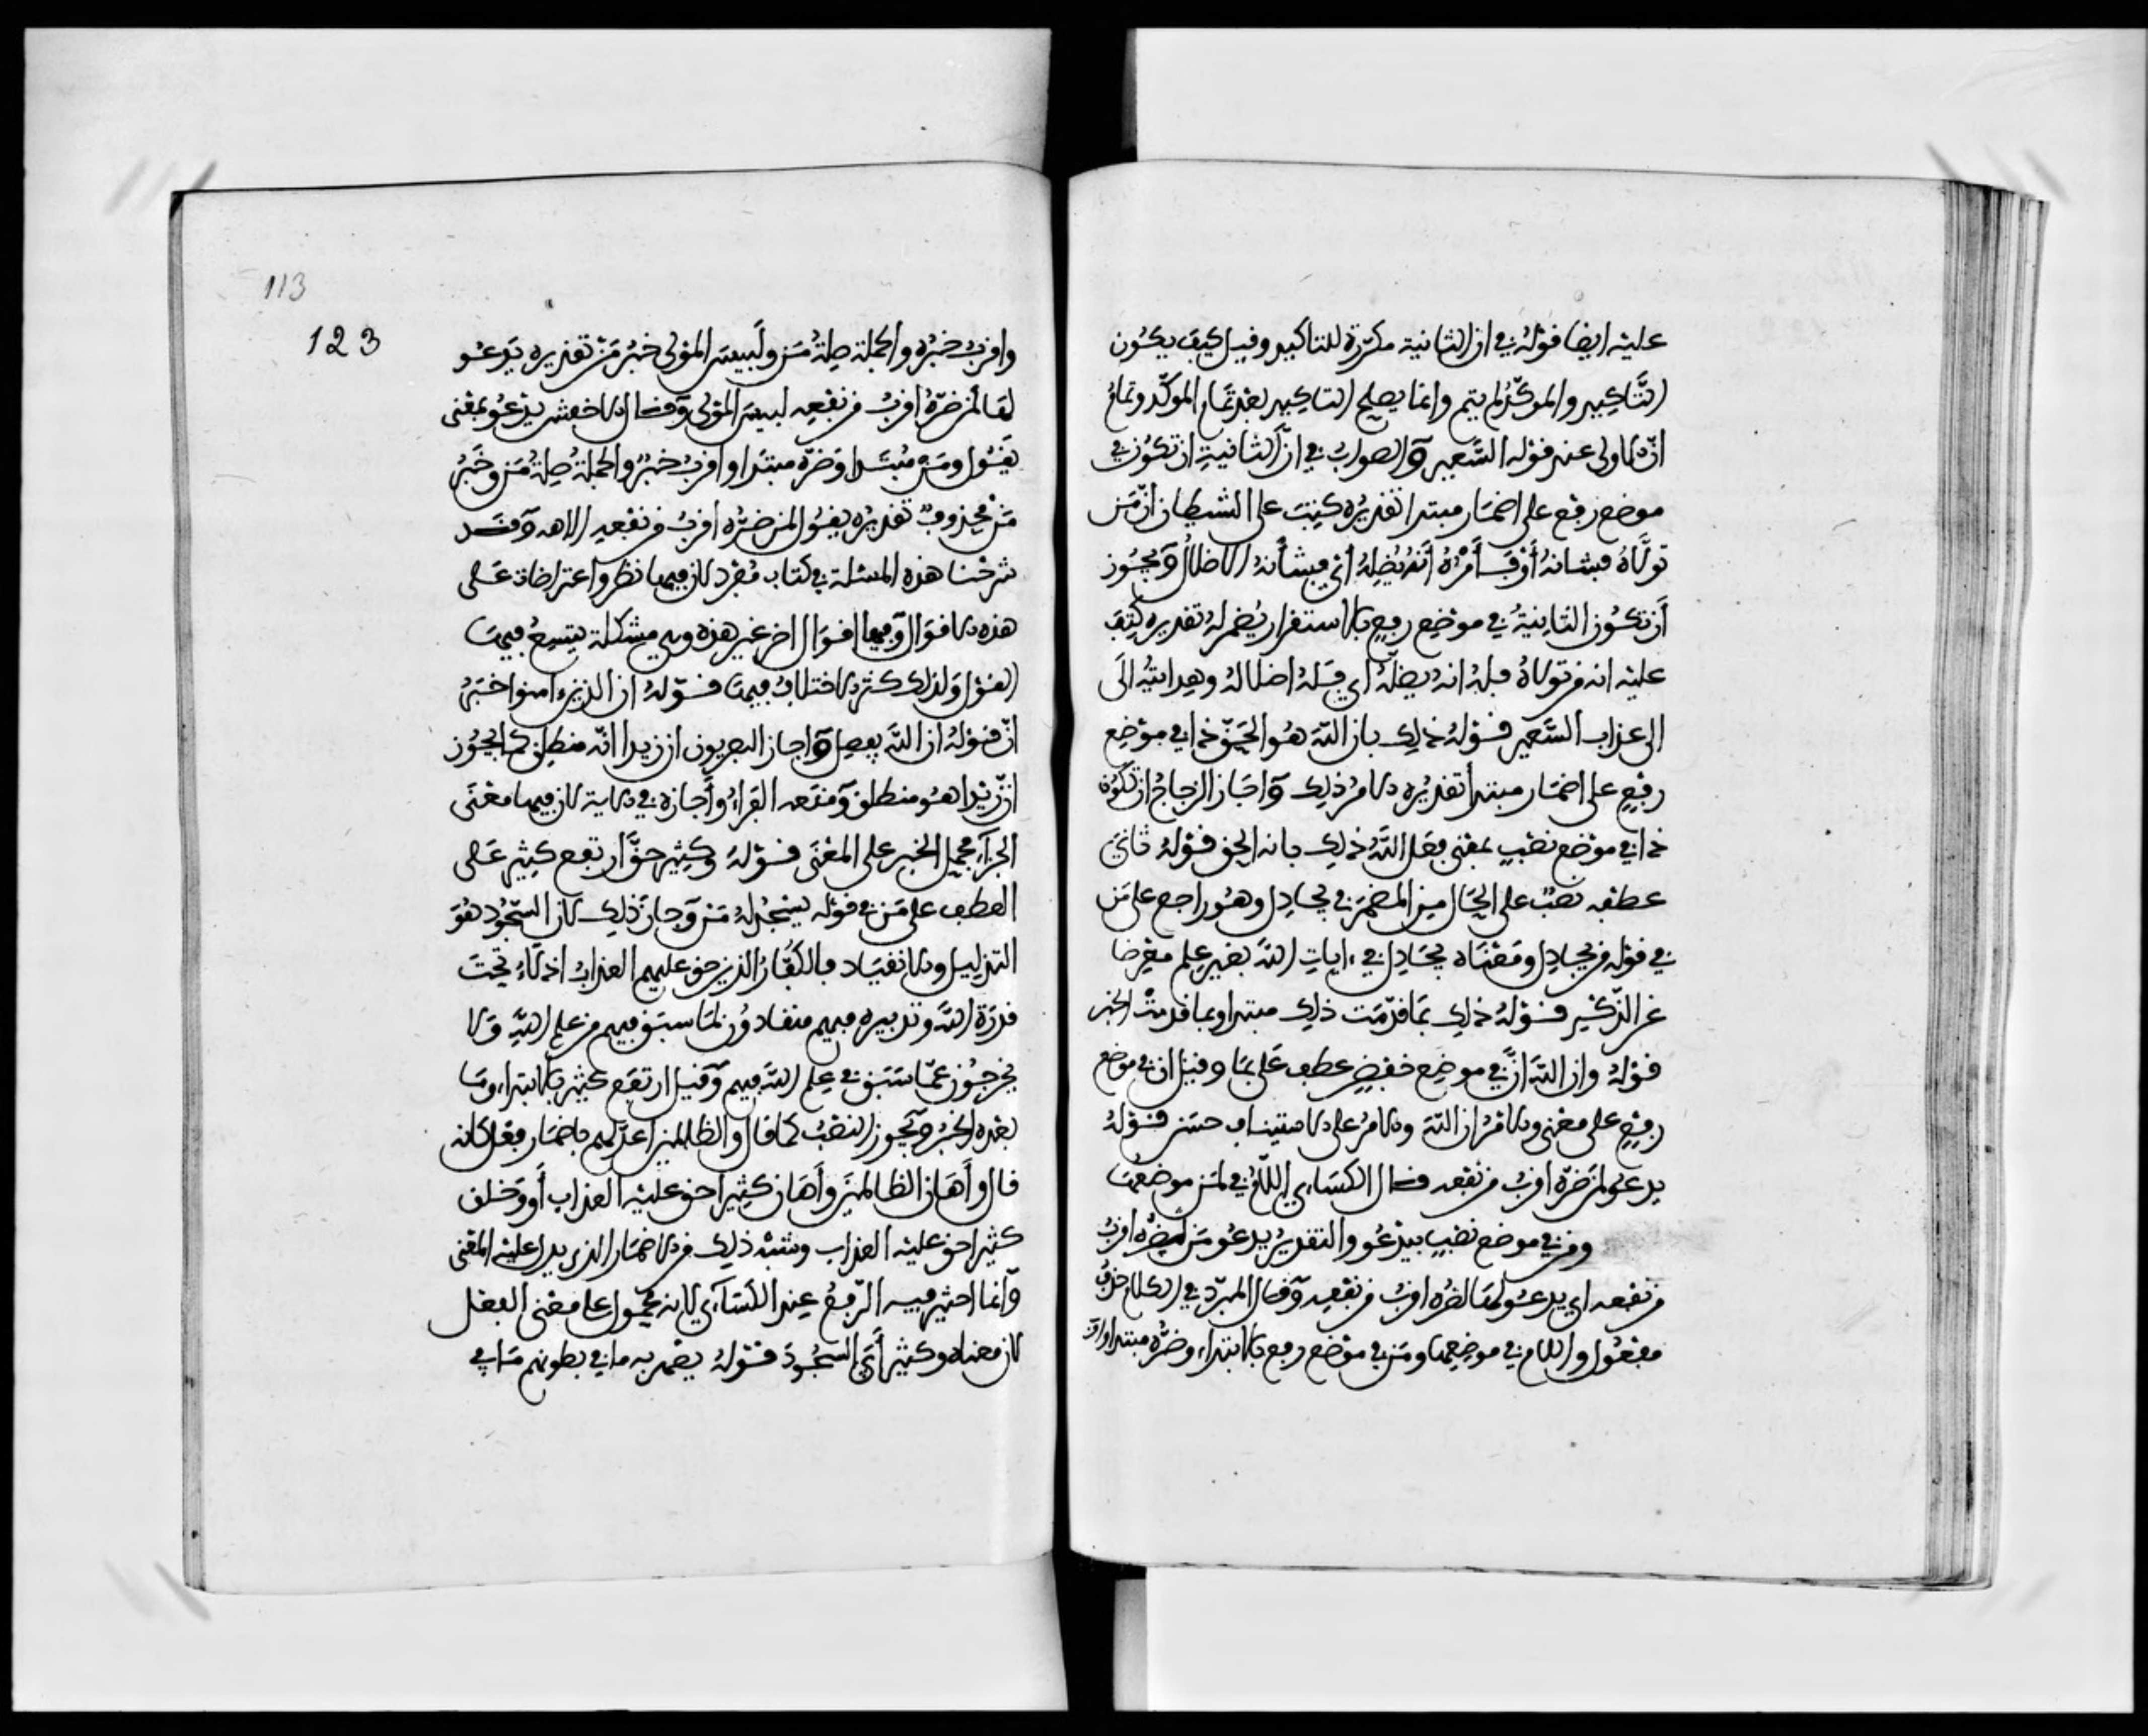 عليه ايضا قوله في ان الثانية مكررة للتاكيد وقيل كيف يكون
التاكيد والموكد لم يتم وانما يصلح التاكيد بعد تمام الموكد وتمام
ان الاولى عند قوله السعير والصواب في ان الثانية ان تكون في
موضع رفع على اضمار مبتدا تقديره كتب على الشيطان ان من
تولاه فشانه او فامره انه يضله اي فشانه الاضلال ويجوز
ان تكون الثانية في موضع رفع بالاستقرار يضمر له تقديره كتب
عليه انه من تولاه فله انه يضله اي فله اضلاله وهدايته الى
الى عذاب السعير قوله ذلك بان الله هو الحق ذا في موضع
رفع على اضمار مبتدا تقديره الامر ذلك واجاز الزجاج ان تكون
ذا في موضع نصب بمعنى فعل الله ذلك بانه الحق قوله ثاني
عطفه نصب على الحال من المضمر في يجادل وهو راجع على من
في قوله من يجادل ومعناه يجادل في ايات الله بغير علم معرضا
عن الذكر قوله ذلك بما قدمت ذلك مبتدا وبما قدمت الخبر
قوله وان الله ان في موضع خفض عطف على بما وقيل ان في موضع
رفع على معنى والامر ان الله والامر على الاستيناف حسن قوله
يدعو لمن ضره اقرب من نفعه قال الكساي اللام في لمن موضعها
ومن في موضع نصب بيدعو والتقدير يدعو من لضره اقرب
من نفعه اي يدعو لها لضره اقرب من نفعه وقال المبرد في الكلام حذف
مفعول واللام في موضعها ومن في موضع رفع بالابتداء وضره مبتدا واق
113
123
واقرب خبره والجملة صلة من ولبيس المولى خبر من تقديره يدعو
لها لمن ضره اقرب من نفعه لبيس المولى وقال الاخفش يدعو بمعنى
يقول ومن مبتدا وضره مبتدا واقرب خبره والجملة صلة من وخبر
من محذوف تقديره يقول لمن ضره اقرب من نفعه الاهه وقد
شرحنا هذه المسئلة في كتاب مفرد لان فيها نظر واعتراضات على
هذه الاقوال وفيها اقوال اخر غير هذه وهي مشكلة يتسع فيها
القول ولذلك كثر الاختلاف فيها قوله ان الذين ءامنوا خبر
ان قوله ان الله يفصل واجاز البصريون ان زيدا انه منطلق كما يجوز
ان زيدا هو منطلق ومنعه الفراء واجازه في الاية لان فيها معنى
الجزاء فحمل الخبر على المعنى قوله وكثير حق ارتفع كثير على
العطف على من في قوله يسجد له من وجاز ذلك لان السجود هو
التذليل والانقياد فالكفار الذين حق عليهم العذاب اذلاء تحت
قدرة الله وتدبيره فهم منقادون لما سبق فيهم من علم الله ولا
يخرجون عما سبق في علم الله فيهم وقيل ارتفع كثير بالابتداء وما
بعده الخبر ويجوز النصب كما قال والظالمين اعد لهم باضمار فعل كانه
قال واهان الظالمين واهان كثيرا حق عليه العذاب او وخلق
كثيرا حق عليه العذاب وشبه ذلك من الاضمار الذي يدل عليه المعنى
وانما احتير فيه الرفع عند الكساي لانه محمول على معنى الفعل
لان معناه وكثير ابى السجود قوله يصهر به ما في بطونهم ما في